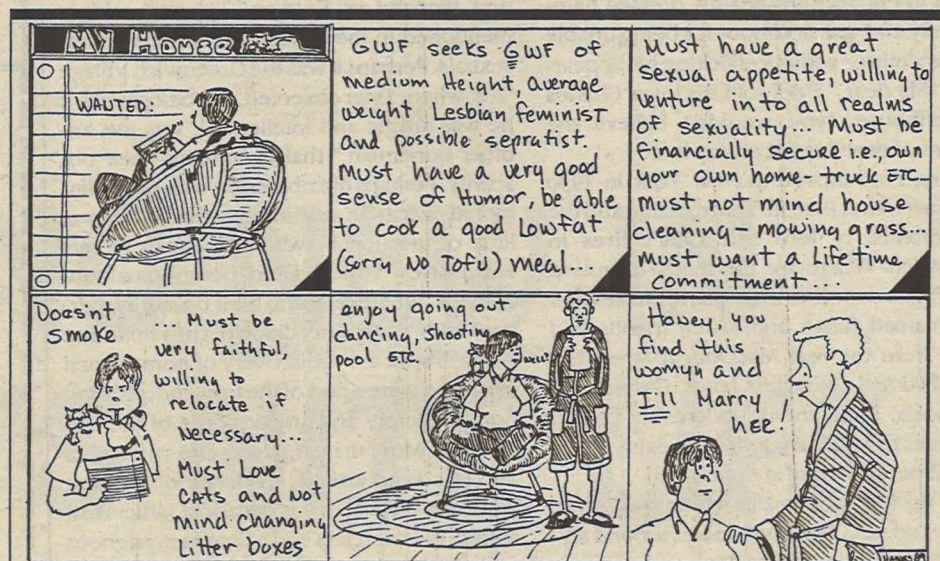 My House
WANTED:
GWF seeks GWF of
Medium Height, average
weight Lesbian feminist
and possible sepratist.
Must have a very good
sense of Humor, be able
to cook a good Lowfat
(sorry No Tofu) meal...
Must have a great
sexual appetite, willing to
venture into all realms
of sexuality... Must be
financially secure i.e., own
your own home-truck ETC...
Must not mind house
cleaning - mowing grass...
Must want a Lifetime
commitment...
Does'nt
smoke
... Must be
very faithful,
willing to
relocate if
Necessary...
Must Love
CATS and NOT
Mind Changing
Litter boxes
enjoy going out
dancing, Shooting
pool ETC.
Honey, you
find this
womyn and
I'll Marry
HER!